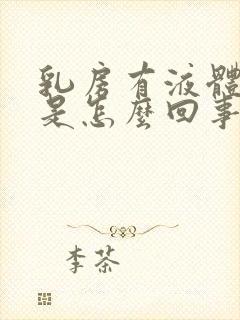 乳房有液體
是怎麼回事
李茶